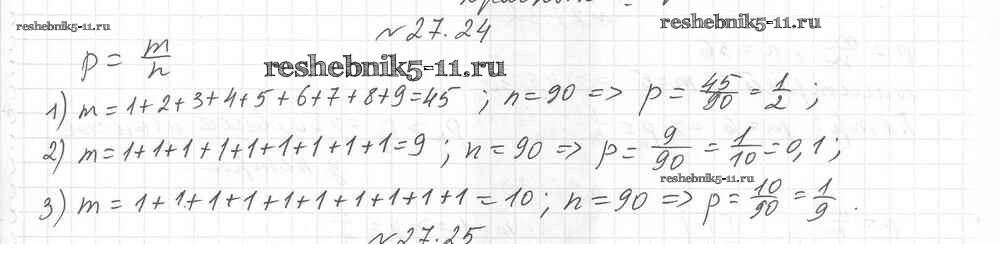 reshebnik5-11.ru
reshebnik5-11.ru
№27.24
p = m/n
reshebnik5-11.ru
1) m = 1+2+3+4+5+6+7+8+9=45 ; n=90 => p = 45/90 = 1/2 ;
2) m = 1+1+1+1+1+1+1+1+1+1=9 ; n = 90 => p = 9/90 = 1/10 = 0,1 ;
reshebnik5-11.ru
3) m = 1+1+1+1+1+1+1+1+1+1 = 10 ; n=90 => p = 10/90 = 1/9 .
№27.25